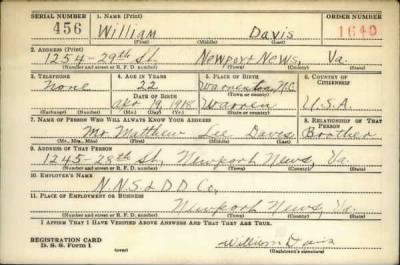 SERIAL NUMBER 1. NAME (Print) ORDER NUMBER
456 William Davis 1640
(First) (Middle) (Last)
2. ADDRESS (Print)
1254-29th St. Newport News, Va.
(Number and street or R. F. D. number) (Town) (County) (State)
3. TELEPHONE 4. AGE IN YEARS 5. PLACE OF BIRTH 6. COUNTRY OF CITIZENSHIP
None 22 Warrenton, N.C.
DATE OF BIRTH (Town or county)
Apr 19, 1918 Warren U.S.A.
(Exchange) (Number) (Mo.) (Day) (Yr.) (State or country)
7. NAME OF PERSON WHO WILL ALWAYS KNOW YOUR ADDRESS 8. RELATIONSHIP OF THAT PERSON
Mr. Matthew Lee Davis Brother
(Mr., Mrs., Miss) (First) (Middle) (Last)
9. ADDRESS OF THAT PERSON
1245-28th St, Newport News, Va.
(Number and street or R. F. D. number) (Town) (County) (State)
10. EMPLOYER'S NAME
N.N.S & D D Co,
11. PLACE OF EMPLOYMENT OR BUSINESS
Newport News, Va.
(Number and street or R. F. D. number) (Town) (County) (State)
I AFFIRM THAT I HAVE VERIFIED ABOVE ANSWERS AND THAT THEY ARE TRUE.
REGISTRATION CARD
D. S. S. Form 1 William Davis
(Registrant's signature)